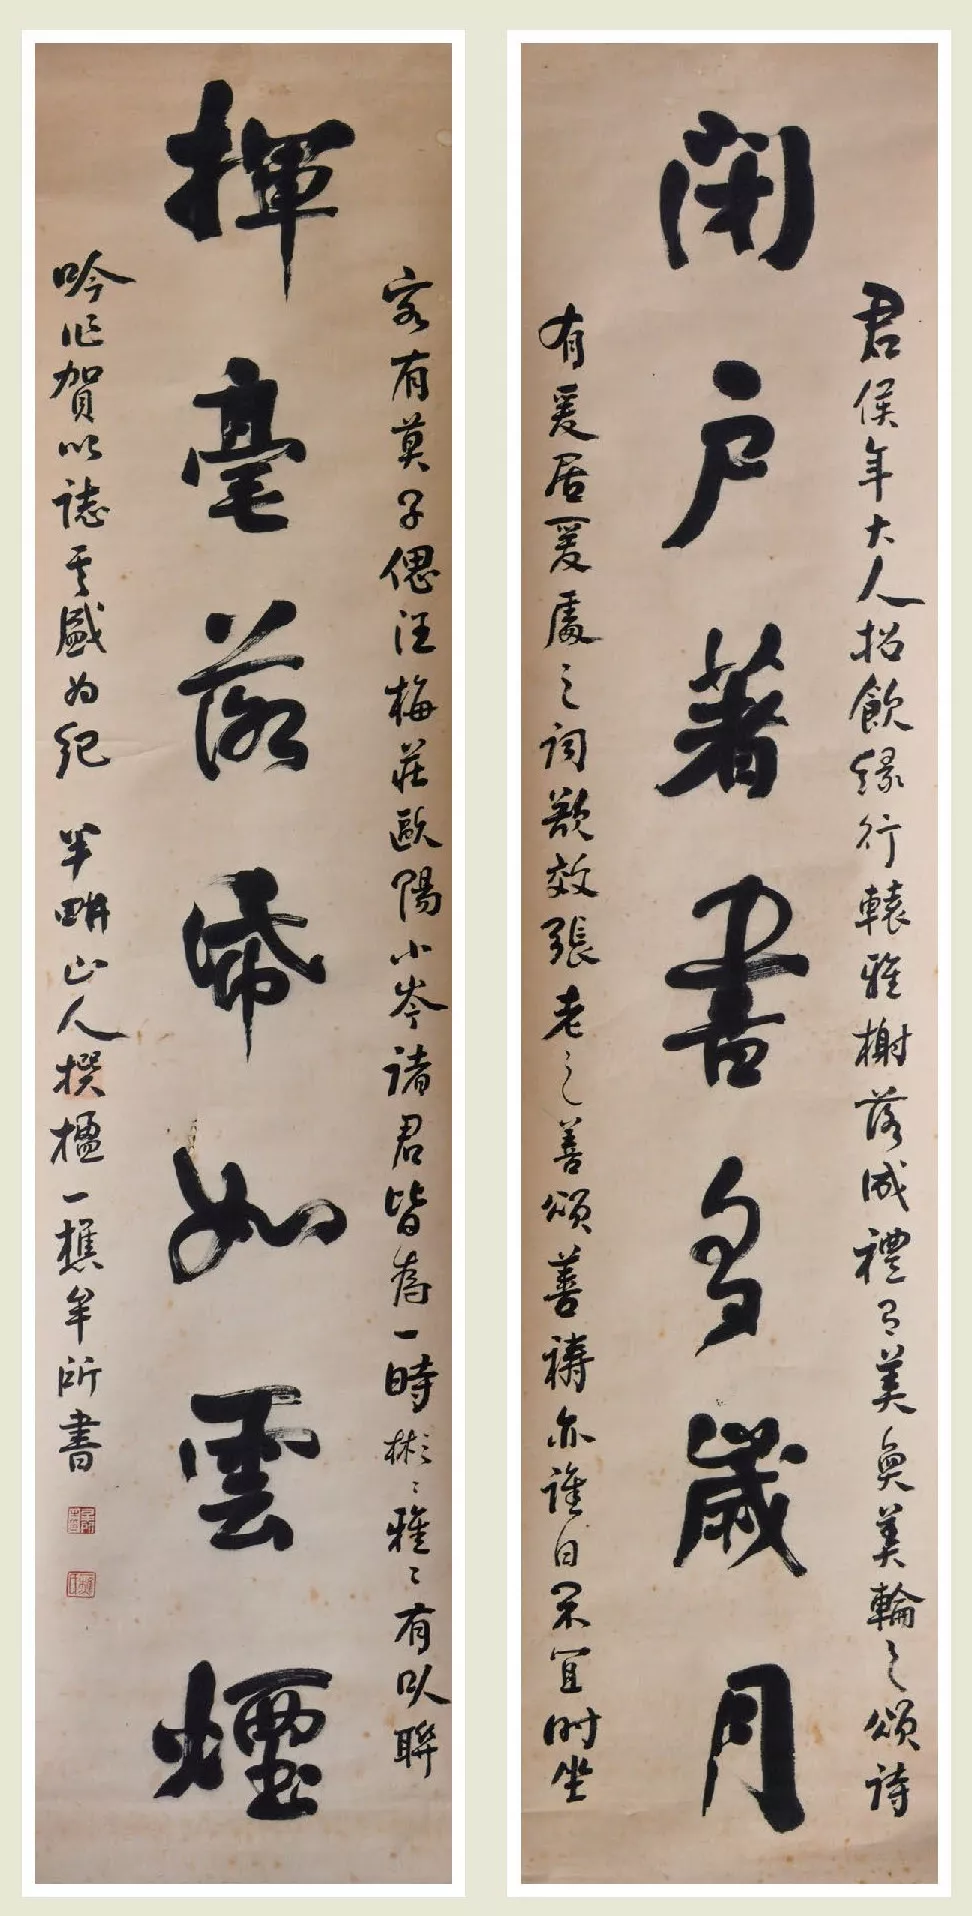 閉戶著書多歲月
君侯年大人招飲緣行轅雅榭落成禮有美奐美輪之頌詩
有爰居爰處之詞竊效張老之善頌善禱亦誰曰不宜時坐
揮毫落紙如雲煙
客有莫子偲汪梅莊歐陽小岑諸君皆為一時彬彬雅雅有以聯
吟作賀以誌其盛為紀 半畊山人撰楹一樵牟所書